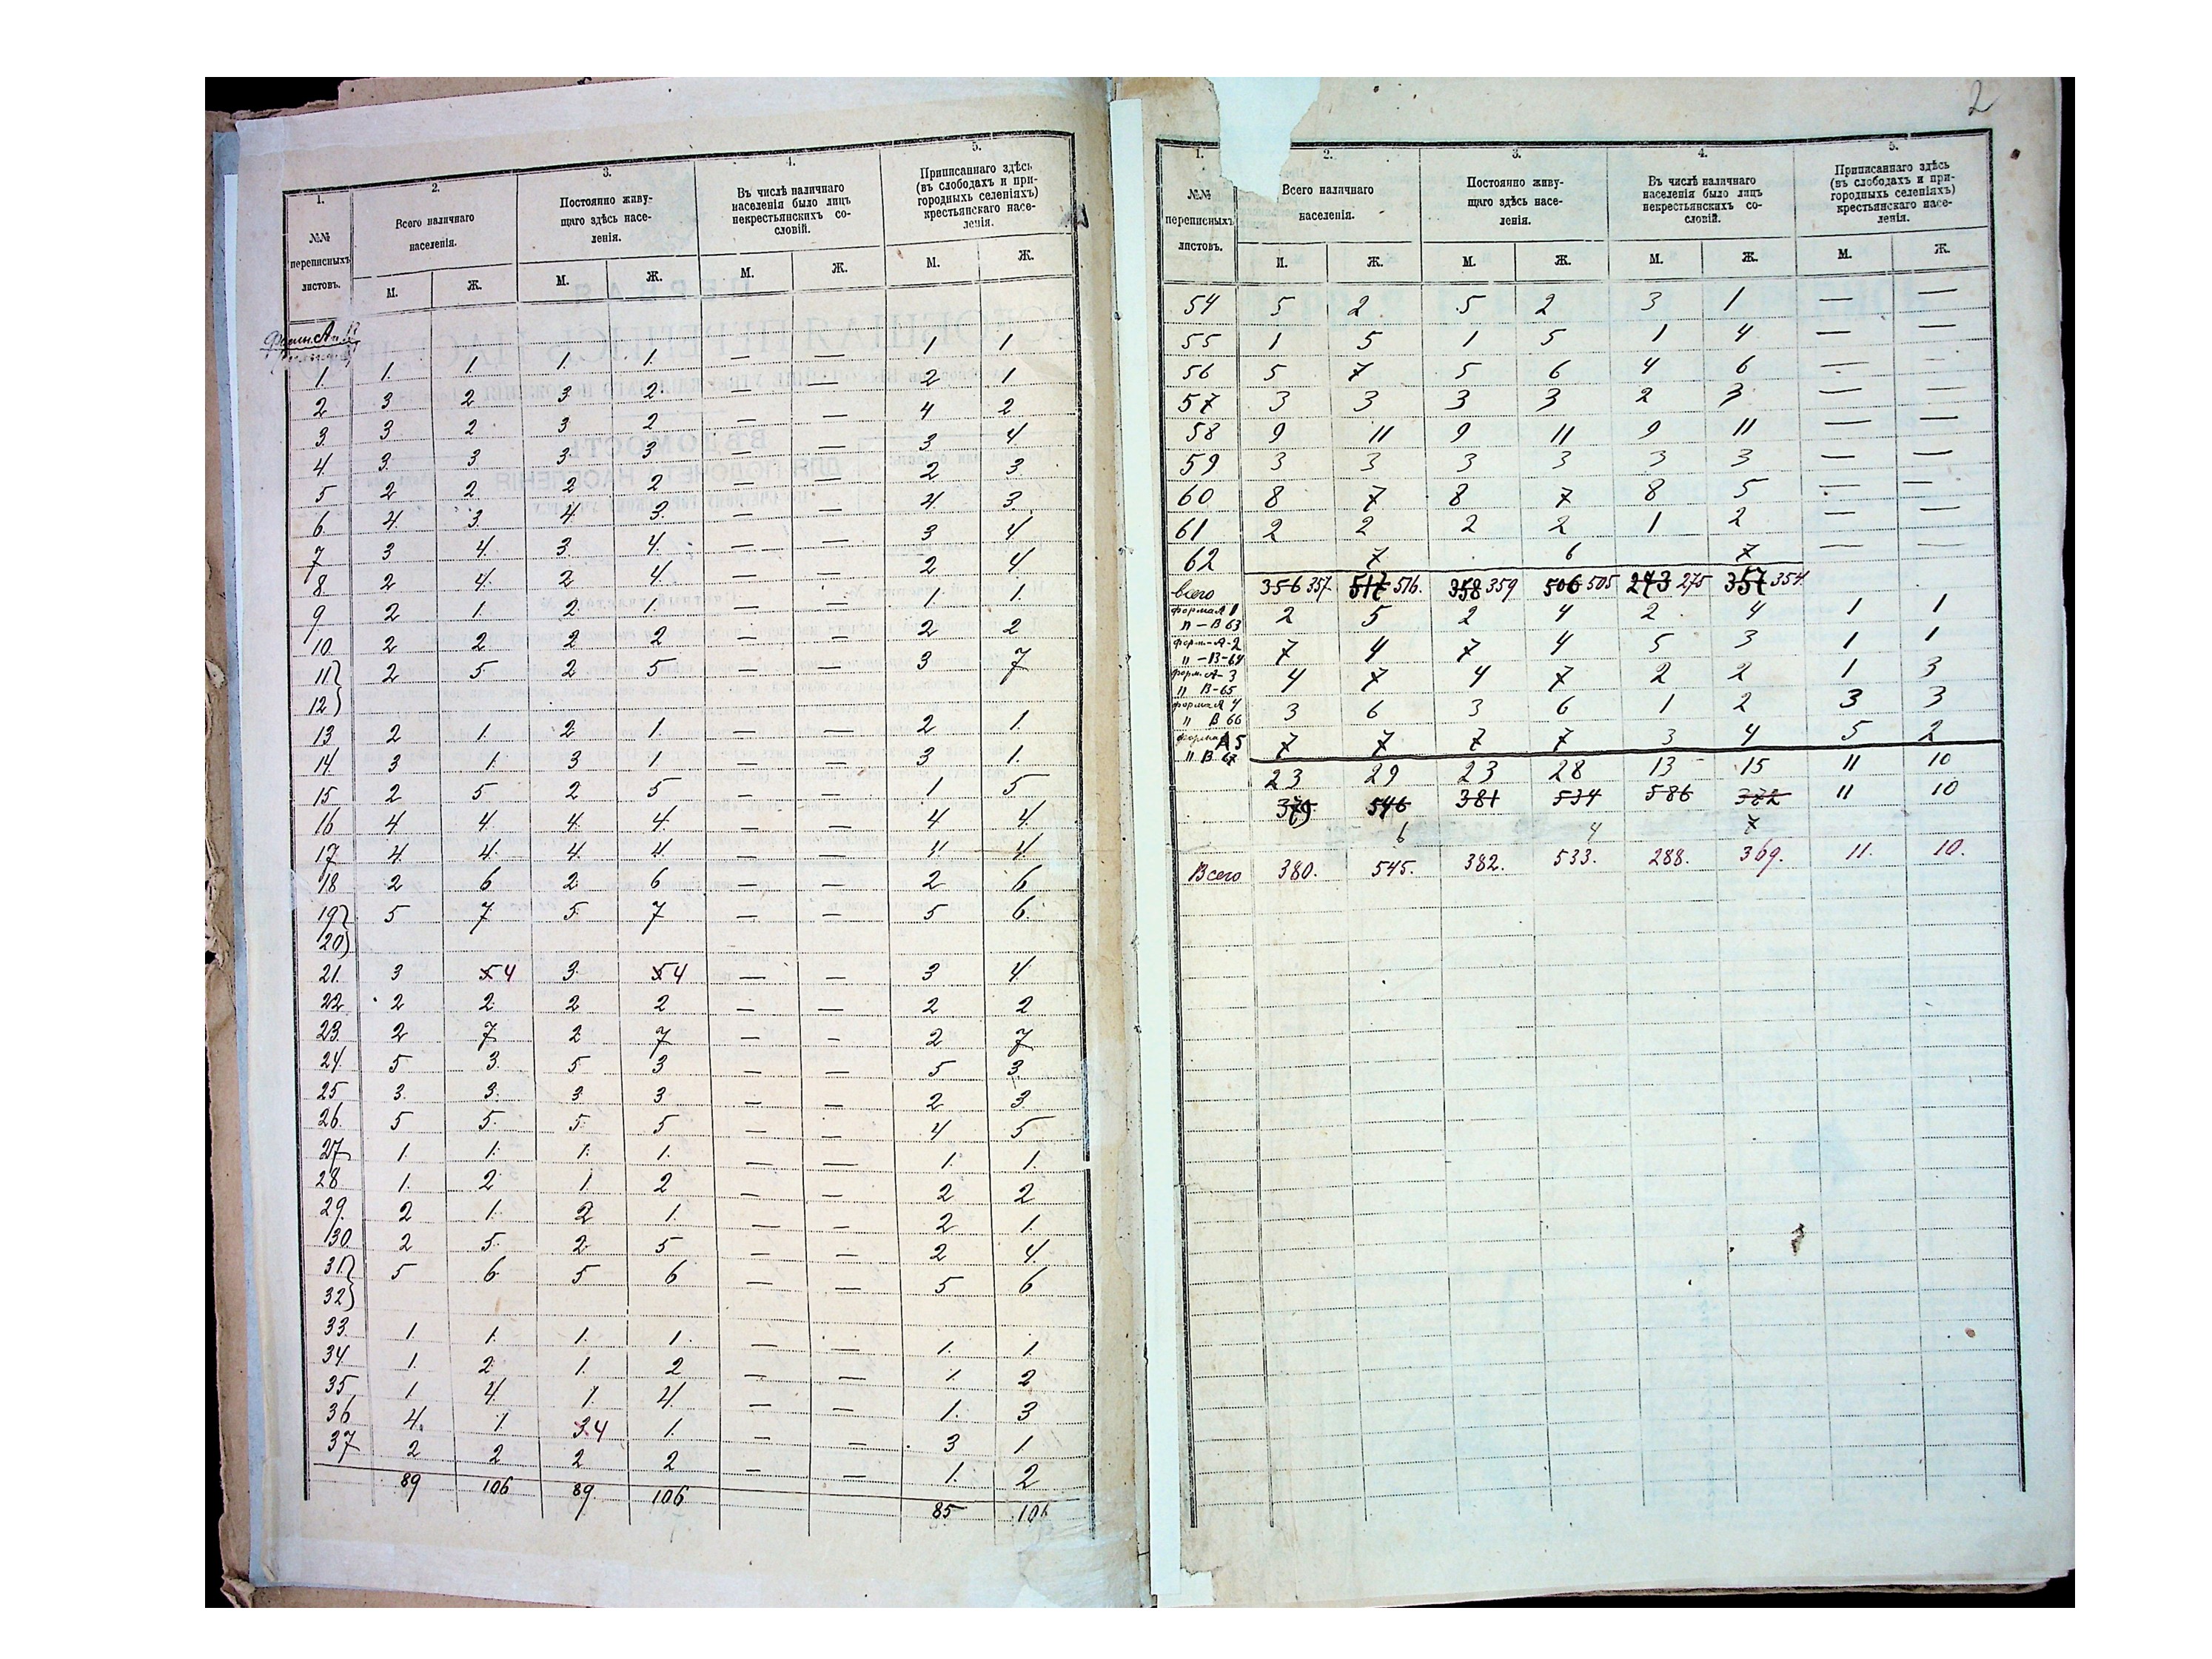 1.
№№
переписныхъ
листовъ.
2.
Всего наличнаго
населенія.
3.
Постоянно живу-
щаго здѣсь насе-
ленія.
4.
Въ числѣ наличнаго
населенія было лицъ
некрестьянскихъ со-
словій.
5.
Приписаннаго здѣсь
(въ слободахъ и при-
городныхъ селеніяхъ)
крестьянскаго насе-
ленія.
М. Ж. М. Ж. М. Ж. М. Ж.
1. 1. 1 1. 1. — — 1 1
2 3 2 3 2. — — 2 1
3. 3 2 3 2 — — 4 2
4. 3. 3 3. 3 — — 3 4
5 2 2 2 2 — — 2 3
6. 4. 3. 4. 3. — — 4 3.
7 3 4. 3. 4. — — 3 4
8. 2 4. 2 4. — — 2 4
9 2 1. 2. 1. — — 1 1.
10. 2 2 2 2 — — 2 2
11 2 5 2 5 — — 3 7
12
13 2 1 2 1. — — 2 1.
14. 3 1. 3 1 — — 3 1.
15 2 5 2 5 — — 1 5
16 4 4. 4. 4. — — 4 4.
17 4. 4. 4. 4. — — 4. 4.
18 2 6 2 6 — — 2 6
19 5 7 5 7 — — 5 6.
20
21. 3 5 4 3. 5 4 — — 3 4
22 2 2 2 2 — — 2 2
23. 2 7 2 7 — — 2 7
24. 5 3. 5 3 — — 5 3
25 3. 3. 3 3 — — 2 3
26. 5 5. 5 5 — — 4 5
27 1. 1. 1. 1. — — 1. 1.
28 1. 2 1 2 — — 2 2
29. 2 1. 2 1. — — 2 1.
30. 2 5 2 5 — — 2 4.
31 5 6 5 6 — — 5 6
32
33. 1. 1. 1. 1. — — 1. 1.
34 1. 2 1. 2 — — 1. 2
35 1 4 1. 4. — — 1. 3
36 4. 1 3.4 1. — — 3 1.
37 2 2 2 2 — — 1. 2
89 106 89. 106. 85 106
2
1.
№№
переписныхъ
листовъ.
2.
Всего наличнаго
населенія.
3.
Постоянно живу-
щаго здѣсь насе-
ленія.
4.
Въ числѣ наличнаго
населенія было лицъ
некрестьянскихъ со-
словій.
5.
Приписаннаго здѣсь
(въ слободахъ и при-
городныхъ селеніяхъ)
крестьянскаго насе-
ленія.
М. Ж. М. Ж. М. Ж. М. Ж.
54 5 2 5 2 3 1 — —
55 1 5 1 5 1 4 — —
56 5 7 5 6 4 6 — —
57 3 3 3 3 2 3 — —
58 9 11 9 11 9 11 — —
59 3 3 3 3 3 3 — —
60 8 7 8 7 8 5 — —
61 2 2 2 2 1 2 — —
62 7 6 7 — —
всего 356 357. 517 516. 358 359 506 505 273 275 357 354.
форма А 1
" — В 63 2 5 2 4 2 4 1 1
форм.-А-2
" — В-64 7 4 7 4 5 3 1 1
форм. А-3
" В-65 4 7 4 7 2 2 1 3
форма А 4
" В 66 3 6 3 6 1 2 3 3
форма А 5
" В 67 7 7 7 7 3 4 5 2
23 29 23 28 13 15 11 10
379 546 381 534 586 372 11 10
6 4 7
Всего 380. 545. 382. 533. 288. 369. 11. 10.